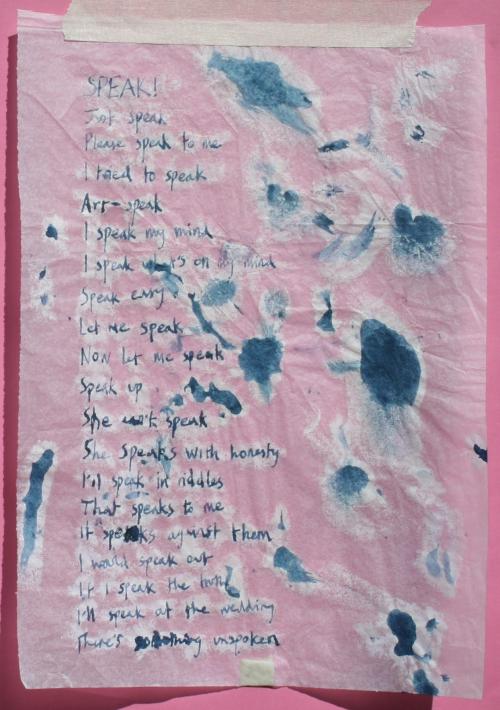 SPEAK!
Just speak
Please speak to me
I tried to speak
Art-speak
I speak my mind
I speak what's on my mind
Speak easy
Let me speak
Now let me speak
Speak up
She can't speak
She speaks with honesty
I'll speak in riddles
That speaks to me
It speaks against them
I would speak out
If I speak the truth
I'll speak at the wedding
There's something unspoken